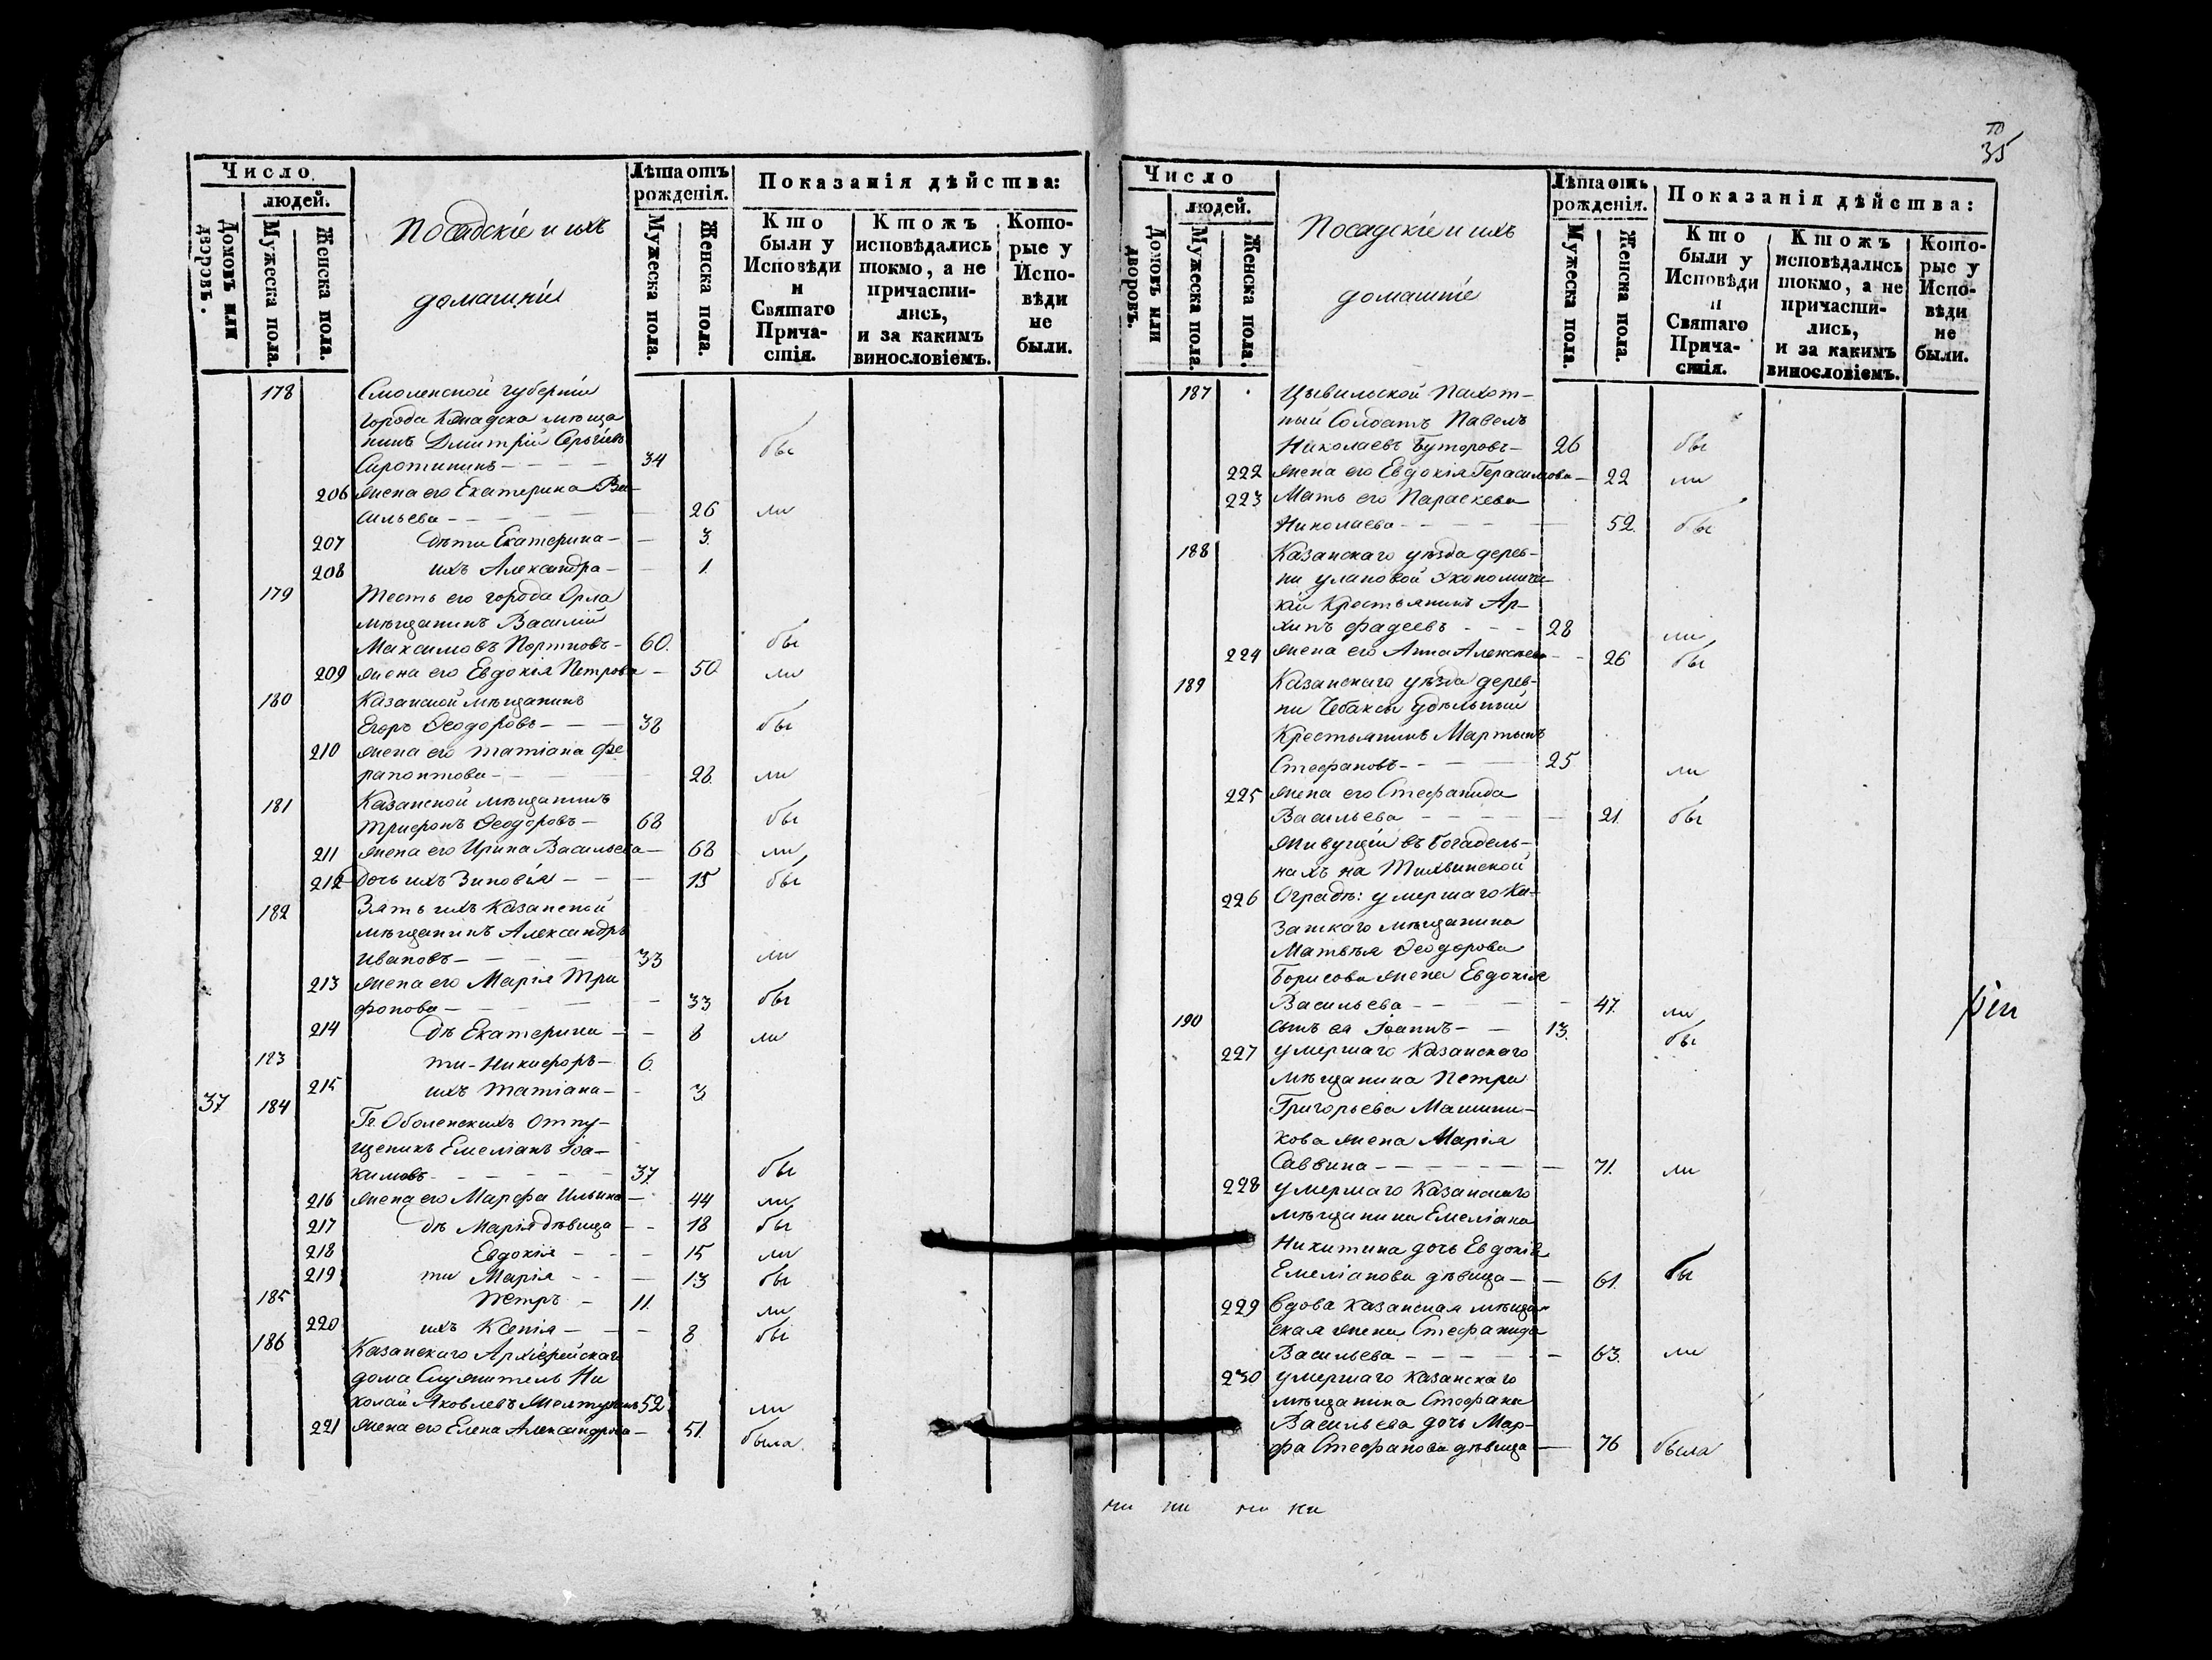 Число
людей.
Домовъ или дворовъ.
Мужеска пола.
Женска пола.
Посадскіе и ихъ
домашніи
Лѣта отъ рожденія.
Мужеска пола.
Женска пола.
Показанія дѣйства:
Кто были у Исповѣди и Святаго Причастія.
Ктожъ исповѣдались токмо, а не причастились, и за какимъ винословіемъ.
Которые у Исповѣди не были.
178 Смоленской губерніи
города мѣща
нинъ Дмитрій Сергѣевъ
Сиротининъ - - - 34 бы
206 жена его Екатерина Ва
сильева - - - 26 ли
207 дѣти Екатерина - - 3.
208 ихъ Александра - - 1.
179 Тесть его города Орла
мѣщанинъ Василій
Максимовъ Портновъ - 60. бы
209 жена его Евдокія Петрова - 50 ли
180 Казанской мѣщанинъ
Егоръ Ѳеодоровъ - - - 38 бы
210 жена его Татіана Фе
рапонтова - - - 28. ли
181 Казанской мѣщанинъ
Трифонъ Ѳеодоровъ - 68 бы
211 жена его Ирина Васильева - 68 ли
212 Дочь ихъ Зиновія - - - 15 бы
182 Зять ихъ Казанской
мѣщанинъ Александръ
Ивановъ - - - 33 ли
213 жена его Марія Три
фонова - - - 33 бы
214 дѣ Екатерина - - 8 ли
183 ти - Никифоръ - 6.
215 ихъ Татіана - - 3
37 184
Гг. Оболенскихъ Отпу-
щеникъ Емеліанъ Іоа-
кимовъ - - - 37 бы
216 жена его Марфа Ильина - 44 ли
217 дѣ Марія дѣвица - - 18 бы
218 Евдокія - - - 15 ли
219 ти Марія - - - 13 бы
185 Петръ - 11. ли
220 ихъ Ксенія - - - 8 бы
186 Казанскаго Архіерейскаго
дома Служитель Ни
колай Яковлевъ 52 ли
221 жена его Елена Александрова - 51. была.
35
Число
людей.
Домовъ или дворовъ.
Мужеска пола.
Женска пола.
Посадскіе и ихъ
домашніе
Лѣта отъ рожденія.
Мужеска пола.
Женска пола.
Показанія дѣйства:
Кто были у Исповѣди и Святаго Причастія.
Ктожъ исповѣдались токмо, а не причастились, и за какимъ винословіемъ.
Которые у Исповѣди не были.
187 Цывильской Пахот-
ный Солдатъ Павелъ
Николаевъ Буторовъ - 26 бы
222 жена его Евдокія Герасимова - 22 ли
223 Мать его Параскева
Николаева - - - 52. бы
188 Казанскаго уѣзда дерев-
ни улановой Экономиче-
кій Крестьянинъ Ар-
хипъ Фадеевъ - - - 28 ли
224 жена его Анна Алексѣева - - 26 бы
189 Казанскаго уѣзда дерев-
ни Чебаксы Удѣльный
Крестьянинъ Мартынъ
Стефановъ - - - 25 ли
225 жена его Стефанида
Васильева - - - 21. бы
Живущіи въ богадель-
нахъ на Тихвинской
226 Оградѣ: умершаго Ка-
занскаго мѣщанина
Матвѣя Ѳеодорова
Борисова жена Евдокія
Васильева - - - 47. ли
190 сынъ ея Іоаннъ - - 13. бы
227 умершаго Казанскаго
мѣщанина Петра
Григорьева Машини-
кова жена Марія
Саввина - - - 71. ли
228 умершаго Казанскаго
мѣщанина Емеліана
Никитина дочь Евдокія
Емеліанова дѣвица - - 61. бы
229 вдова казанская мѣщан
ская жена Стефанида
Васильева - - - 63. ли
230 умершаго казанскаго
мѣщанина Стефана
Васильева дочь Мар-
фа Стефанова дѣвица - 76 была
ни ни ни ни